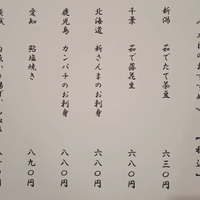 新潟 茹でたて茶豆 六三〇円
千葉 茹で落花生 六八〇円
北海道 新さんまのお刺身 六八〇円
鹿児島 カンパチのお刺身 八八〇円
愛知 鮎塩焼き 八九〇円